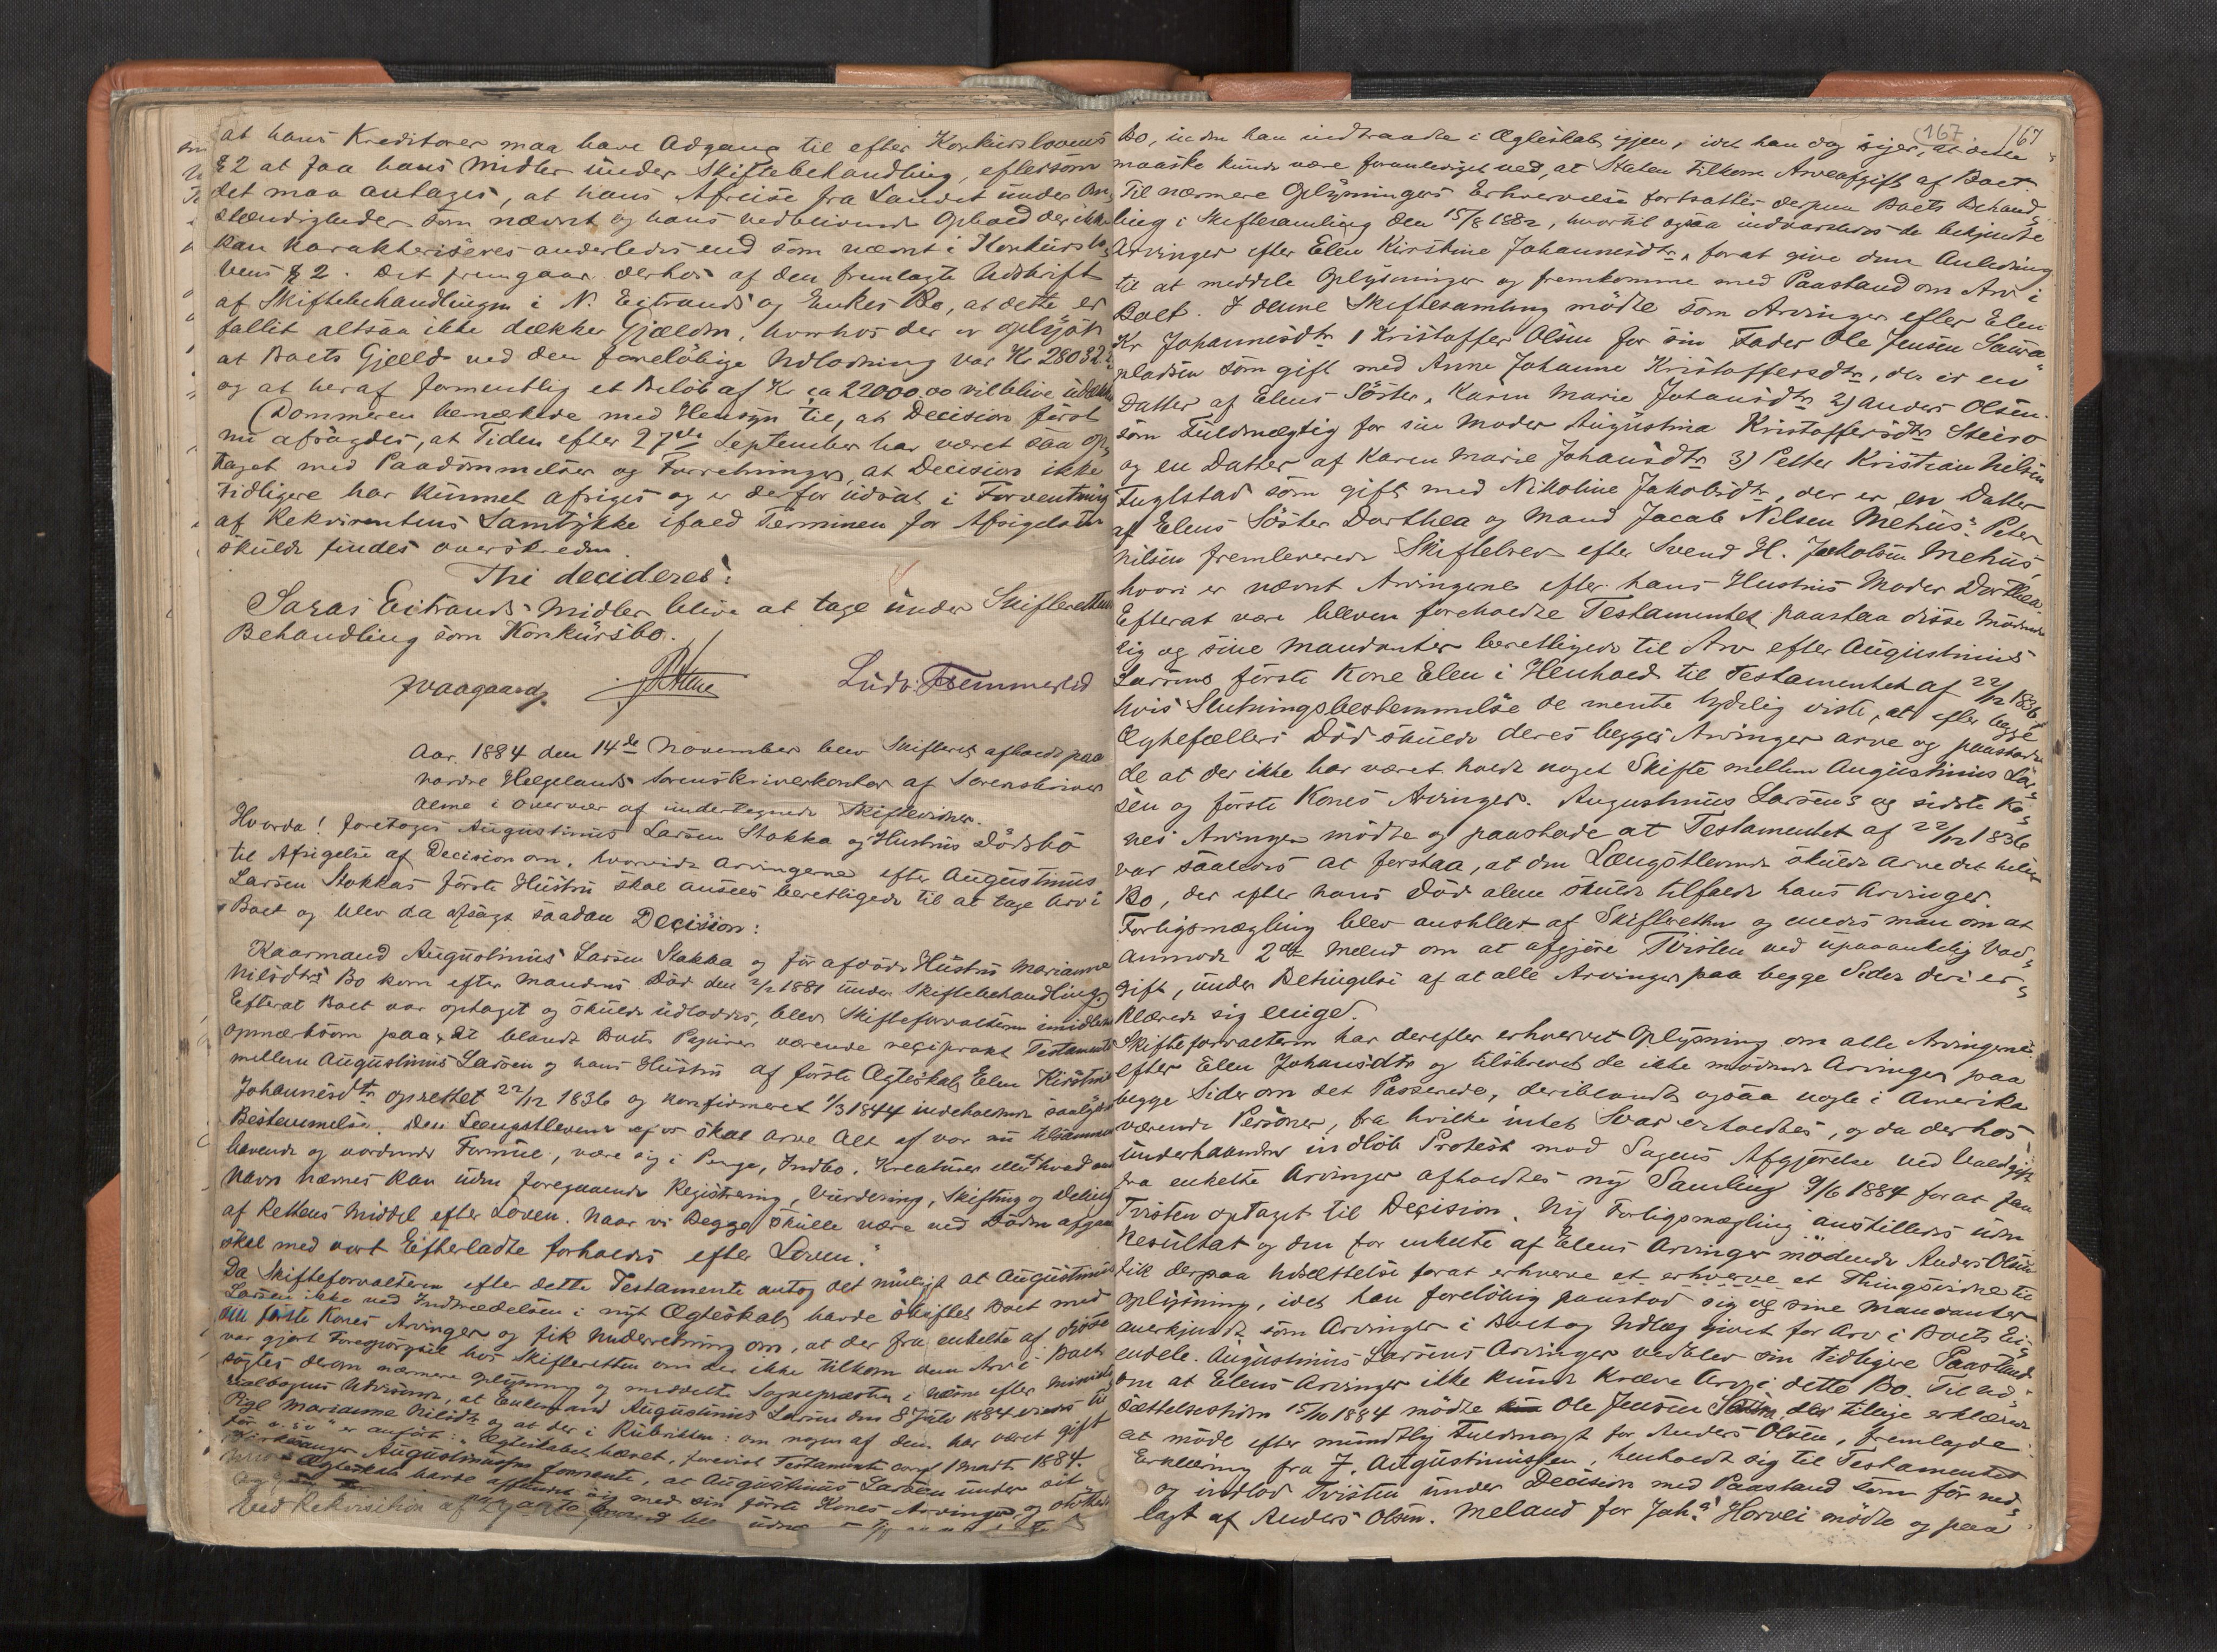 at hans Kreditorer maa have Adgang til efter Konkurslovens
§ 2 at faa hans Midler under Skiftebehandling, eftersom
det maa antages, at hans Afreise fra Landet under Om¬
stændigheder som nævnt og hans vedblivende Ophold der ikke
kan karakteriseres anderledes end som nævnt i Konkurslo¬
vens § 2. Det fremgaar derhos af den fremlagte Udskrift
af Skiftebehandlingen i N. Eitrands og Enkes Bo, at dette er
fallit altsaa ikke dækker Gjælden, hvorhos der er oplyst
at Boets Gjæld ved den foreløbige Udlodning var Kr 28032
og at heraf formentlig et Beløb af Kr ca 22000.00 vil blive udækket
(Dommeren bemærkede med Hensyn til, at Decision først
nu afsagdes, at Tiden efter 27de September har været saa op¬
taget med Paadømmelser og Forretninger, at Decision ikke
tidligere har kunnet afsiges og er derfor udsat i Forventning
af Rekvirentens Samtykke ifald Terminen for Afsigelsen
skulde findes overskreden.
Thi decideres:
Saras Eitrands Midler blive at tage under Skifterettens
Behandling som Konkursbo.
Ludv. Temmerlid
Aar 1884 den 14de November blev Skifteret afholdt paa
nordre Helgelands Sorenskriverkontor af Sorenskriver
Alme i Overvær af undertegnede Skiftevidner.
Hvorda! foretoges Augustinus Larsen Stokka og Hustrus Dødsbo
til Afsigelse af Decision om, hvorvidt Arvingerne efter Augustinus
Larsen Stokkas første Hustru skal ansees berettigede til at tage Arv i
Boet og blev da afsagt saadan Decision:
Kaarmand Augustinus Larsen Stokka og før afdøde Hustru Marianne
Nilsdtrs Bo kom efter Mandens Død den 2/2 1881 under Skiftebehandling.
Efterat Boet var optaget og skulde udloddes, blev Skifteforvalteren imidlertid
opmærksom paa et blandt Boets Papirer værende reciprokt Testamente
mellem Augustinus Larsen og hans Hustru af første Ægteskab Elen Kirstine
Johannesdtr oprettet 22/12 1836 og konfirmeret 1/3 1844 indeholdende saalydende
Bestemmelse. Den Længstlevende af os skal arve Alt af vor nu tilsammen
havende og vordende Formue, være sig i Penge, Indbo, Kreaturer eller hvad
Navn nævnes kan uden foregaaende Registrering, Vurdering, Skiftning og Deling
af Rettens Middel efter Loven. Naar vi Begge skulle være ved Døden afgaaet
skal med vort Efterladte forholdes efter Loven."
Da Skifteforvalteren efter dette Testamente antog det muligt at Augustinus
Larsen ikke ved Indtrædelsen i nyt Ægteskab havde skiftet Boet med
den første Kones Arvinger og fik Underretning om, at der fra enkelte af disse
var gjort Forespørgsel hos Skifteretten om der ikke tilkom dem Arv i Boet
søgtes derom nærmere Oplysning og meddelte Sognepræsten i Næsne efter Ministe¬
rialbogens Udvisende, at Enkemand Augustinus Larsen den 8 Juli 1884 viedes til
Pige Marianne Nilsdtr og at der i Rubrikken: om nogen af dem har været gift
før er anført: Ægteskabet hævet, forevist Testamente confi 1 Marts 1884.
Augustinussen formente, at Augustinus Larsen under sit
Ægteskab havde affundet sig med sin første Kones Arvinger og
Ved Rekvisition af

(167 167
Bo, inden han indtraadte i Ægteskab igjen, idet han dog siger, at dette
maaske kunde være foranlediget ved, at Staten tilkom Arveafgift af Boet.
Til nærmere Oplysningers Erhvervelse fortsattes derpaa Boets Behand¬
ling i Skiftesamling den 15/8 1882, hvortil ogsaa indvarsledes de bekjendte
Arvinger efter Elen Kirstine Johannesdtr, forat give dem Anledning
til at meddele Oplysninger og fremkomme med Paastand om Arv i
Boet. I denne Skiftesamling mødte som Arvinger efter Elen
Kr Johannesdtr 1 Kristoffer Olsen for sin Fader Ole Jensen Saura
pladsen som gift med Anne Johanne Kristoffersdtr, der er en
Datter af Elens Søster, Karen Marie Johansdtr 2) Anders Olsen
som Fuldmægtig for sin Moder Augustina Kristoffersdtr Steiro
og en Datter af Karen Marie Johansdtr 3) Petter Kristian Nilsen
Fuglstad som gift med Nikoline Jakobsdtr, der er en Datter
af Elens Søster Dorthea og Mand Jacob Nilsen Mehus. Peter
Nilsen fremleverede Skiftebrev efter Svend H. Jakobsen Mehus,
hvori er nævnt Arvingerne efter hans Hustrus Moder Dorthea.
Efterat være bleven foreholdte Testamentet paastaa disse Mødende
sig og sine Mandanter berettigede til Arv efter Augustinus
Larsens første Kone Elen i Henhold til Testamentet af 22/12 1836
hvis Slutningsbestemmelse de mente tydelig viste, at efter begge
Ægtefællers Død skulde deres begges Arvinger arve og paastode
de at der ikke har været holdt noget Skifte mellem Augustinus Lar¬
sen og første Kones Arvinger. Augustinus Larsens og sidste Ko¬
nes Arvinger mødte og paastode at Testamentet af 22/12 1836
var saaledes at forstaa, at den Længstlevende skulde arve det hele
Bo, der efter hans Død alene skulde tilfalde hans Arvinger.
Forligsmægling blev anstillet af Skifteretten og enedes man om at
anmode 2de Mænd om at afgjøre Tvisten ved upaaankelig Vold¬
gift, under Betingelse af at alle Arvinger paa begge Sider deri er¬
klærede sig enige.
Skifteforvalteren har derefter erhvervet Oplysning om alle Arvingerne
efter Elen Johansdtr og tilskrevet de ikke mødende Arvinger paa
begge Sider om det Passerede, deriblandt ogsaa nogle i Amerika
værende Personer, fra hvilke intet Svar erholdtes, og da derhos
underhaanden indløb Protest mod Sagens Afgjørelse ved Voldgift
fra enkelte Arvinger afholdtes ny Samling 9/6 1884 forat faa
Tvisten optaget til Decision. Ny Forligsmægling anstilledes uden
Resultat og den for enkelte af Elens Arvinger mødende Anders Olsen
fik derpaa Udsættelse forat erhverve et erhverve et Thingsvidne til
Oplysning, idet han foreløbig paastod sig og sine Mandanter
anerkjendt som Arvinger i Boet og Udlæg givet for Arv i Boets Ei¬
endele. Augustinus Larsens Arvinger vedblev sin tidligere Paastand
om at Elens Arvinger ikke kunde kræve Arv i dette Bo. Til Ud¬
sættelsestiden 15/10 1884 mødte Ole Jensen der tillige erklærede
at møde efter mundtlig Fuldmagt for Anders Olsen, fremlagde
Erklæring fra J. Augustinussen, henholdt sig til Testamentet
og indlod Tvisten under Decision med Paastand som før ned¬
lagt af Anders Olsen. Meland for Johs Horvei mødte og paa